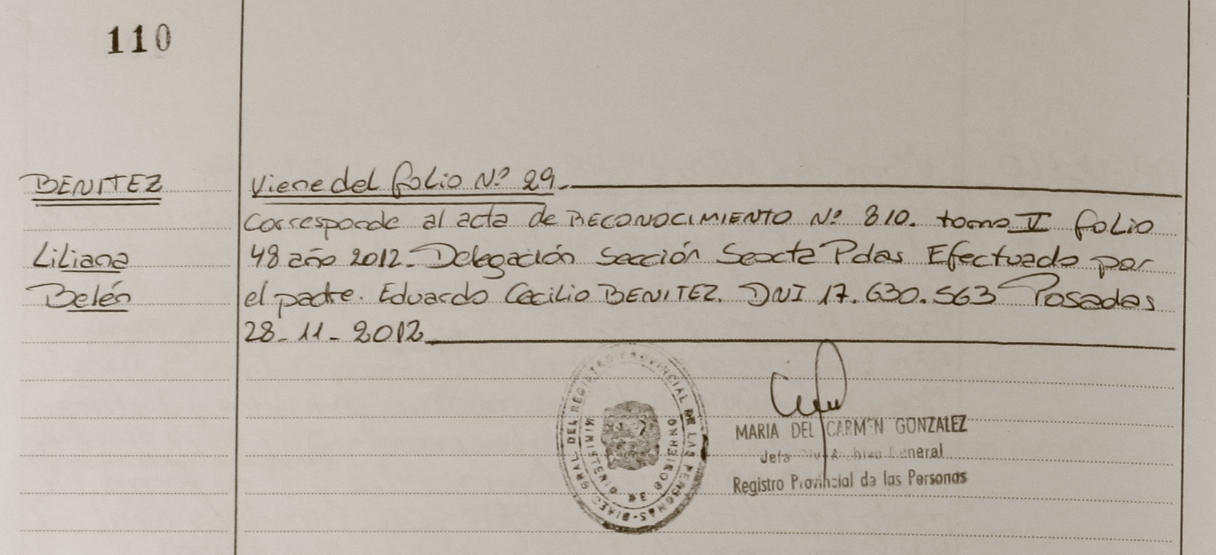 110
BENITEZ
Liliana
Belén
Viene del folio Nº 29.
Corresponde al acta de RECONOCIMIENTO Nº 810. tomo V folio
48 año 2012. Delegación Sección Sexta Pdas Efectuado por
el padre. Eduardo Cecilio BENITEZ. DNI 17.630.563 Posadas
28-11-2012
DIREC. GRAL. DEL REGISTRO PROVINCIAL DE LAS PERSONAS
MINISTERIO DE GOBIERNO
MARIA DEL CARMEN GONZALEZ
Jefa Archivo General
Registro Provincial de las Personas